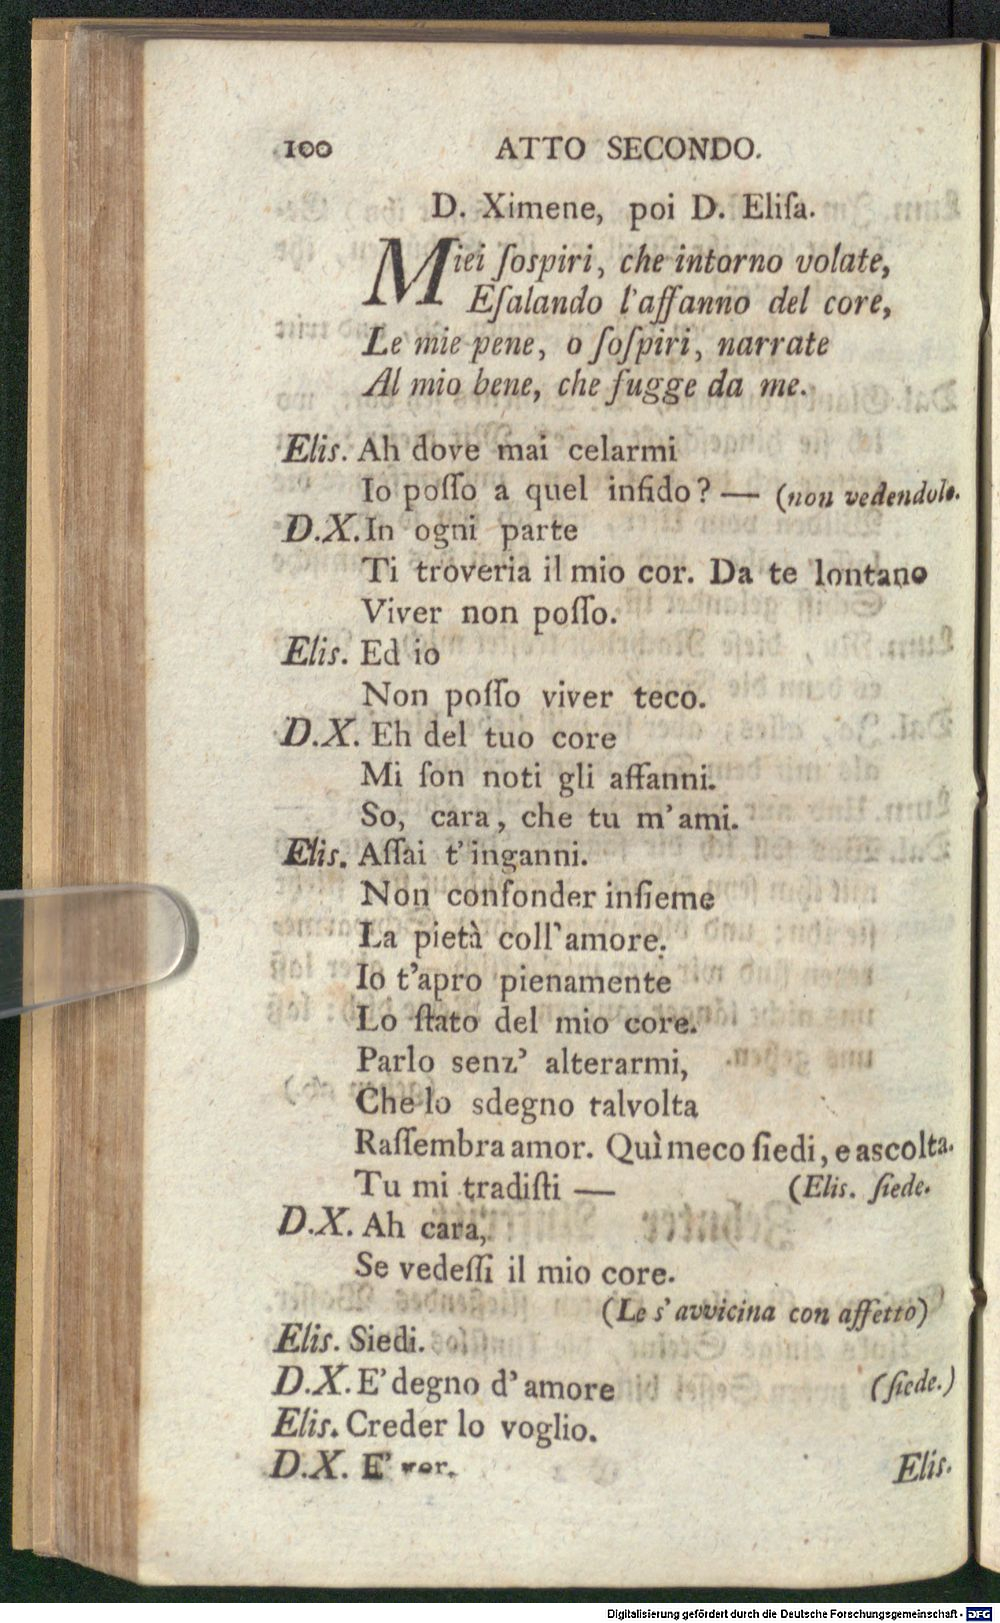 100 ATTO SECONDO.
D. Ximene, poi D. Eliſa.
Miei ſospiri, che intorno volate,
Eſalando l'affanno del core,
Le mie pene, o ſoſpiri, narrate
Al mio bene, che fugge da me.
Elis. Ah dove mai celarmi
Io poſſo a quel infido? — (non vedendolo.
D.X. In ogni parte
Ti troveria il mio cor. Da te lontano
Viver non poſſo.
Elis. Ed io
Non poſſo viver teco.
D.X. Eh del tuo core
Mi ſon noti gli affanni.
So, cara, che tu m'ami.
Elis. Aſſai t'inganni.
Non confonder inſieme
La pietà coll'amore.
Io t'apro pienamente
Lo ſtato del mio core.
Parlo senz' alterarmi,
Che lo sdegno talvolta
Raſſembra amor. Quì meco ſiedi, e ascolta.
Tu mi tradiſti — (Elis. ſiede.
D.X. Ah cara,
Se vedeſſi il mio core.
(Le s'avvicina con affetto)
Elis. Siedi.
D.X. E' degno d'amore (ſiede.)
Elis. Creder lo voglio.
D.X. E' ver.
Elis.
Digitalisierung gefördert durch die Deutsche Forschungsgemeinschaft - DFG